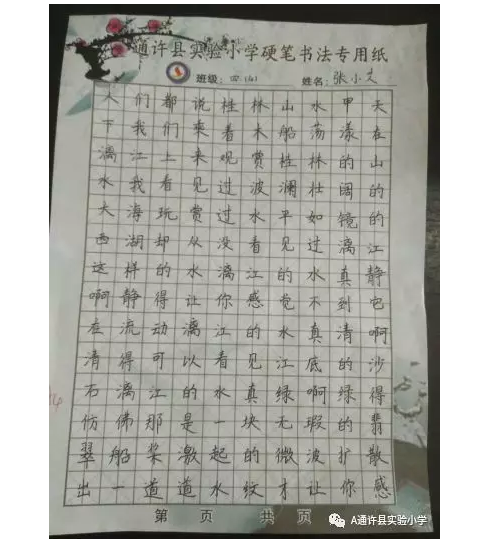 通许县实验小学硬笔书法专用纸
班级: 四(4) 姓名: 张小艾
人们都说桂林山水甲天
下我们乘着木船荡漾在
漓江上来观赏桂林的山
水我看见过波澜壮阔的
大海玩赏过水平如镜的
西湖却从没看见过漓江
这样的水漓江的水真静
啊静得让你感觉不到它
在流动漓江的水真清啊
清得可以看见江底的沙
石漓江的水真绿啊绿得
仿佛那是一块无瑕的翡
翠船桨激起的微波扩散
出一道道水纹才让你感
第 页 共 页
A通许县实验小学